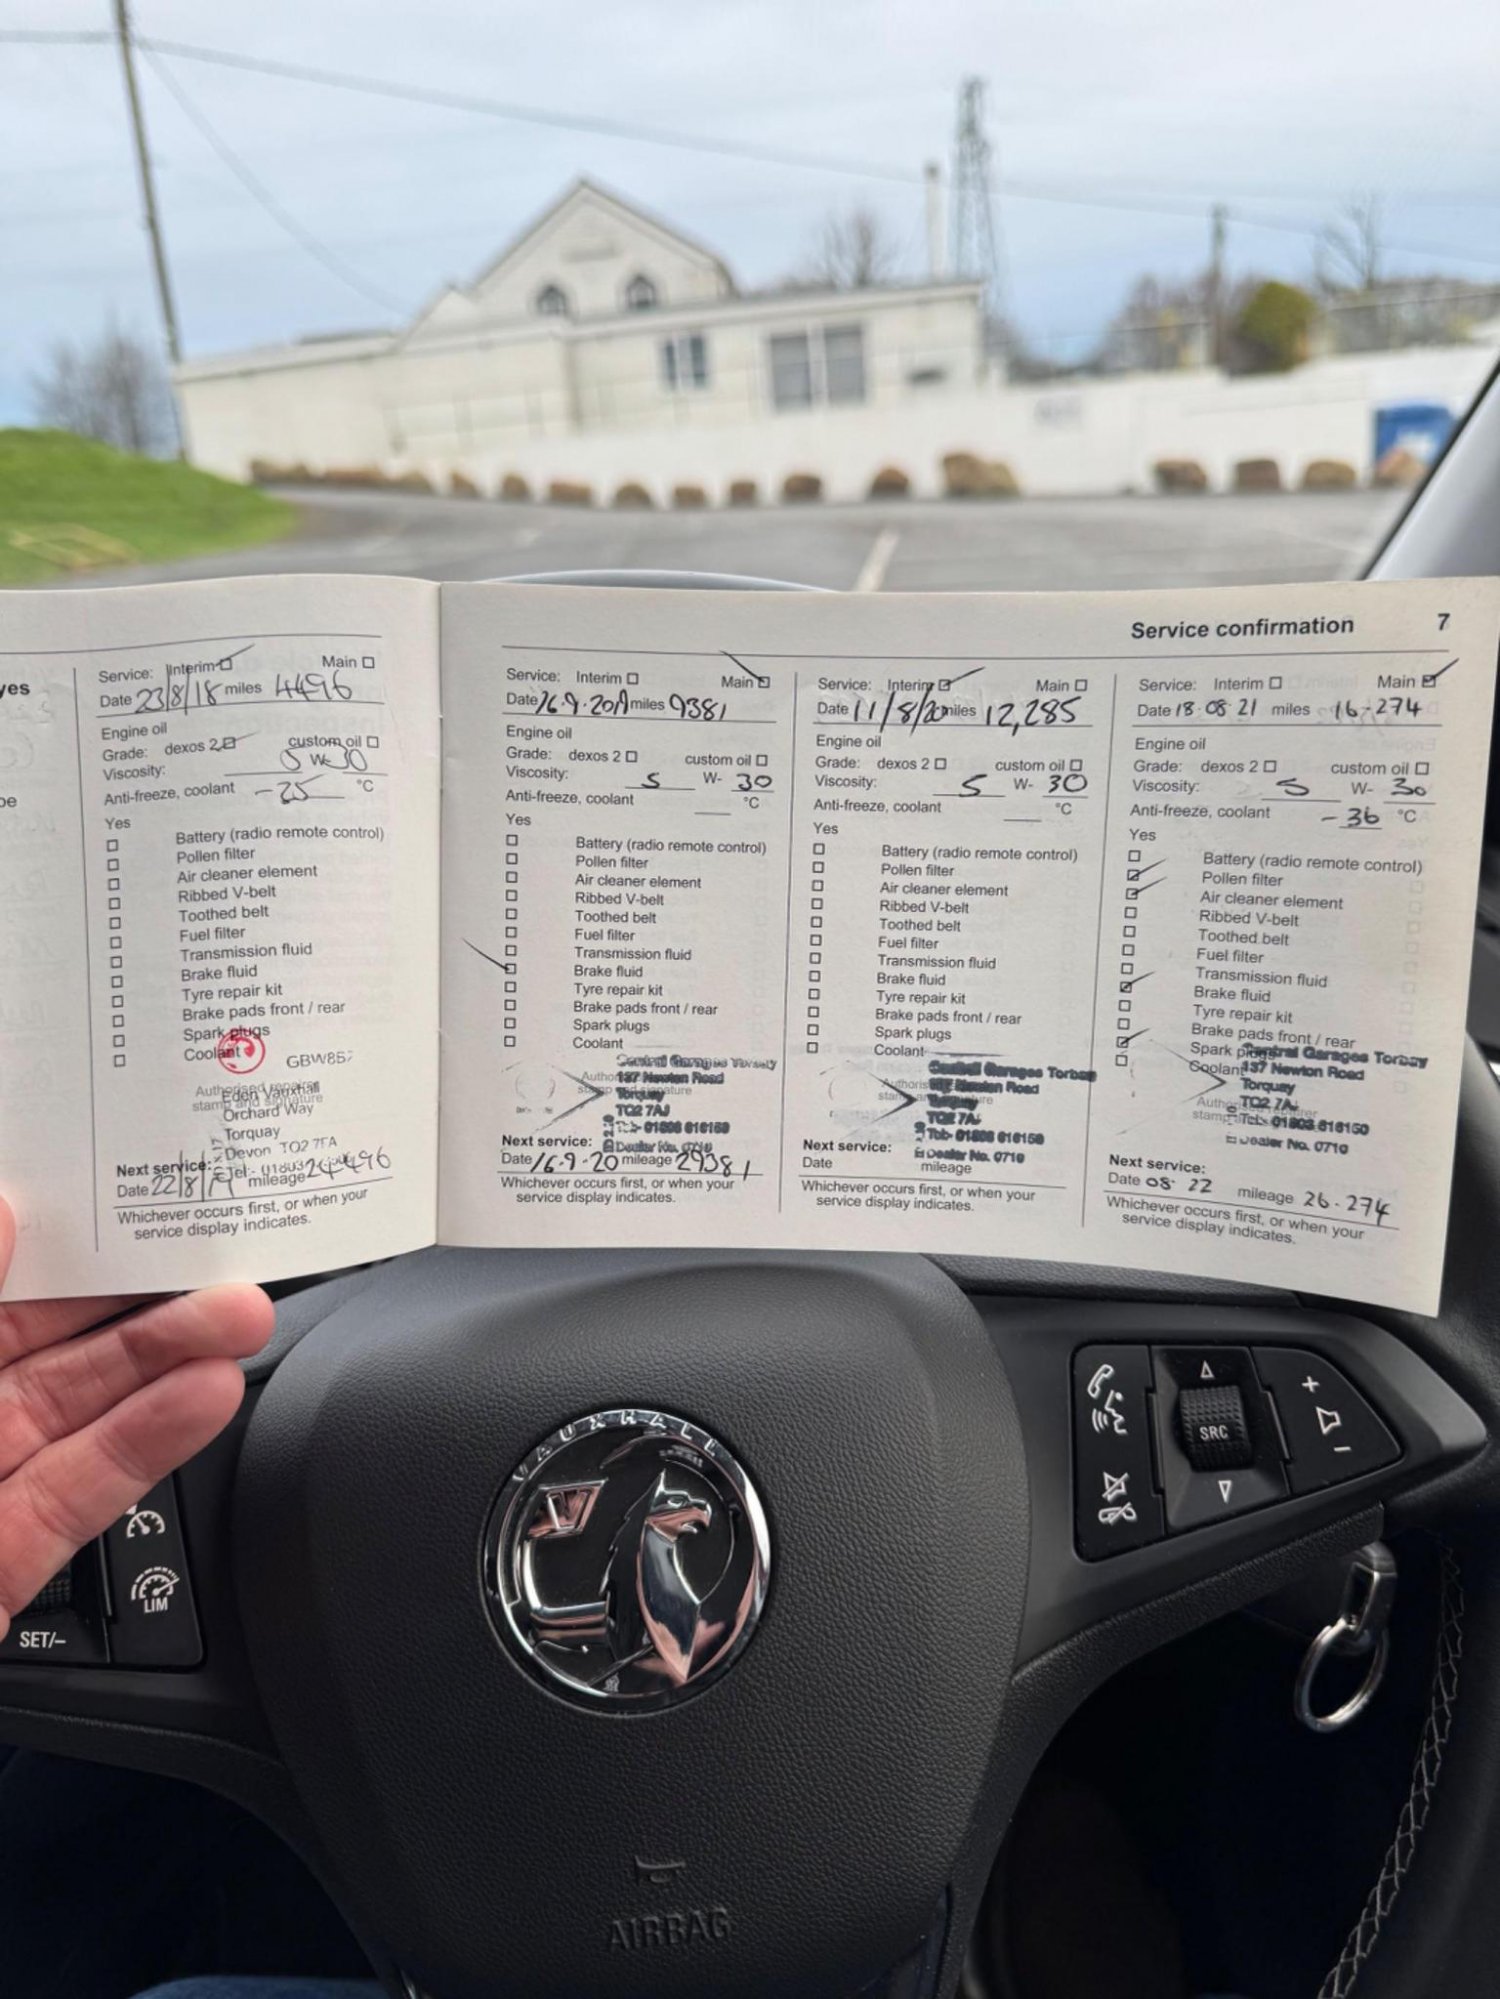 yes
Service: Interim Main
Date 23/8/18 miles 4496
Engine oil
Grade: dexos 2 custom oil
Viscosity: 5 W-30
Anti-freeze, coolant -25 °C
Yes
Battery (radio remote control)
Pollen filter
Air cleaner element
Ribbed V-belt
Toothed belt
Fuel filter
Transmission fluid
Brake fluid
Tyre repair kit
Brake pads front / rear
Spark plugs
Coolant
Authorised repairer
stamp and signature
Eden Vauxhall
Orchard Way
Torquay
Devon TQ2 7FA
Next service:
Date 22/8/19 mileage 24496
Whichever occurs first, or when your
service display indicates.
Service confirmation 7
Service: Interim Main
Date 16.9.2019 miles 9381
Engine oil
Grade: dexos 2 custom oil
Viscosity: 5 W- 30
Anti-freeze, coolant °C
Yes
Battery (radio remote control)
Pollen filter
Air cleaner element
Ribbed V-belt
Toothed belt
Fuel filter
Transmission fluid
Brake fluid
Tyre repair kit
Brake pads front / rear
Spark plugs
Coolant
Central Garages Torbay
137 Newton Road
Torquay
TQ2 7AJ
Tel:- 01803 616150
Dealer No. 0710
Next service:
Date 16.9.20 mileage 29381
Whichever occurs first, or when your
service display indicates.
Service: Interim Main
Date 11/8/20 miles 12,285
Engine oil
Grade: dexos 2 custom oil
Viscosity: 5 W- 30
Anti-freeze, coolant °C
Yes
Battery (radio remote control)
Pollen filter
Air cleaner element
Ribbed V-belt
Toothed belt
Fuel filter
Transmission fluid
Brake fluid
Tyre repair kit
Brake pads front / rear
Spark plugs
Coolant
Central Garages Torbay
137 Newton Road
Torquay
TQ2 7AJ
Tel:- 01803 616150
Dealer No. 0710
Next service:
Date mileage
Whichever occurs first, or when your
service display indicates.
Service: Interim Main
Date 18.08.21 miles 16.274
Engine oil
Grade: dexos 2 custom oil
Viscosity: 5 W- 30
Anti-freeze, coolant -36 °C
Yes
Battery (radio remote control)
Pollen filter
Air cleaner element
Ribbed V-belt
Toothed belt
Fuel filter
Transmission fluid
Brake fluid
Tyre repair kit
Brake pads front / rear
Spark plugs
Coolant
Central Garages Torbay
137 Newton Road
Torquay
TQ2 7AJ
Tel:- 01803 616150
Dealer No. 0710
Next service:
Date 08.22 mileage 26.274
Whichever occurs first, or when your
service display indicates.
VAUXHALL
V
SRC
+
-
LIM
SET/-
AIRBAG